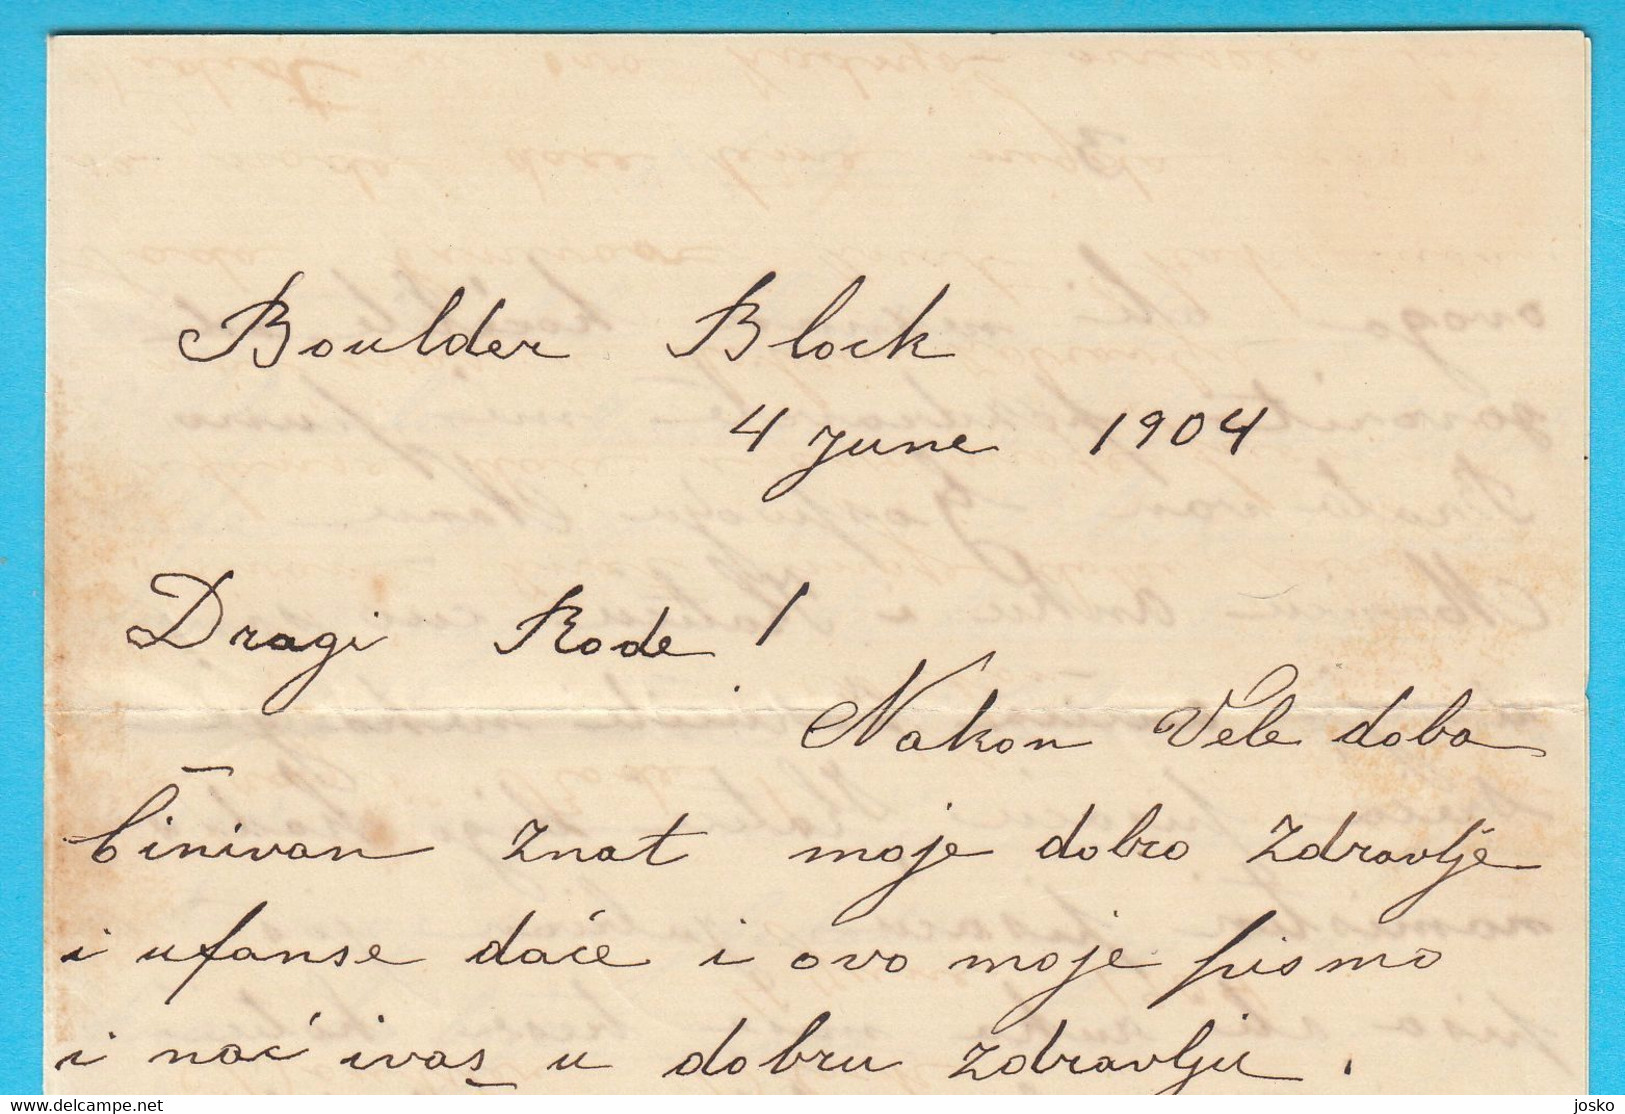 Boulder Block
4 June 1904
Dragi Rode!
Nakon Vele doba
činivan znat moje dobro zdravlje
i ufanse daće i ovo moje pismo
i nać ivas u dobru zdravlju.
www.delcampe.net
josko